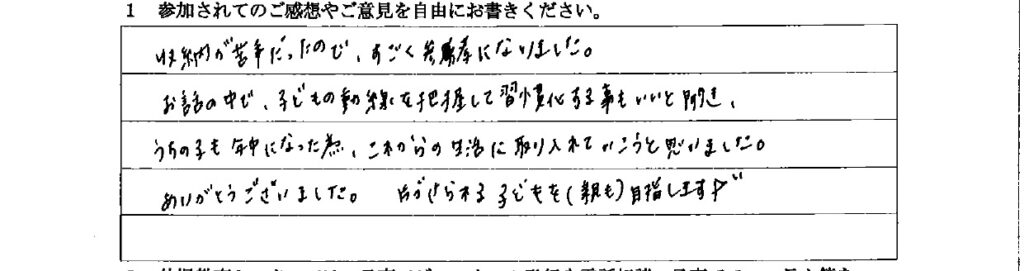 1 参加されてのご感想やご意見を自由にお書きください。
収納が苦手だったので、すごく参考になりました。
お話の中で、子どもの動線を把握して習慣化する事もいいと聞き、
うちの子も年中になった為、これからの生活に取り入れていこうと思いました。
ありがとうございました。 片づけられる子どもを(親も)目指します